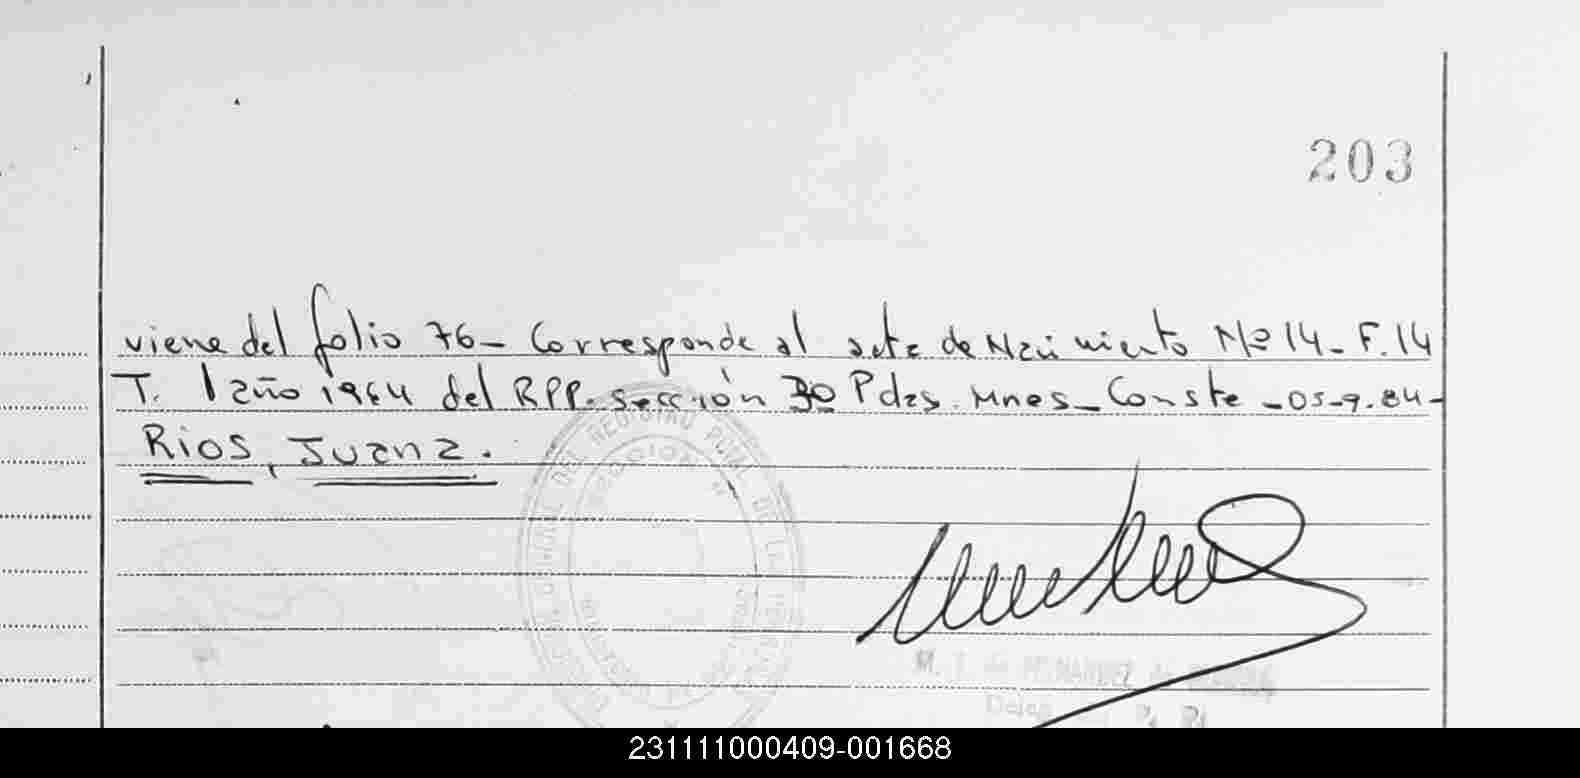 203
viene del folio 76 - Corresponde al acta de Nacimiento Nº 14 - F. 14
T. 1 año 1964 del RPP. sección 30 Pdas. Mnes - Conste - 05-9-84 -
Rios, Juana.
DEL REGISTRO
M. T. de
231111000409-001668